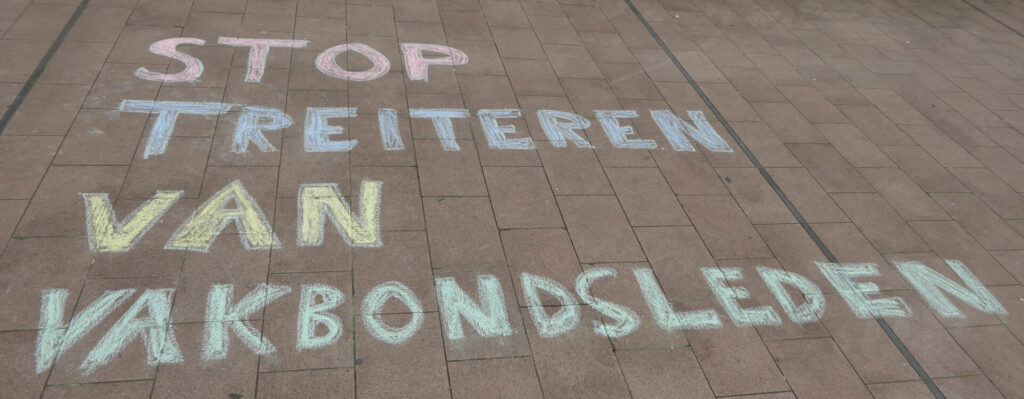 STOP
TREITEREN
VAN
VAKBONDSLEDEN